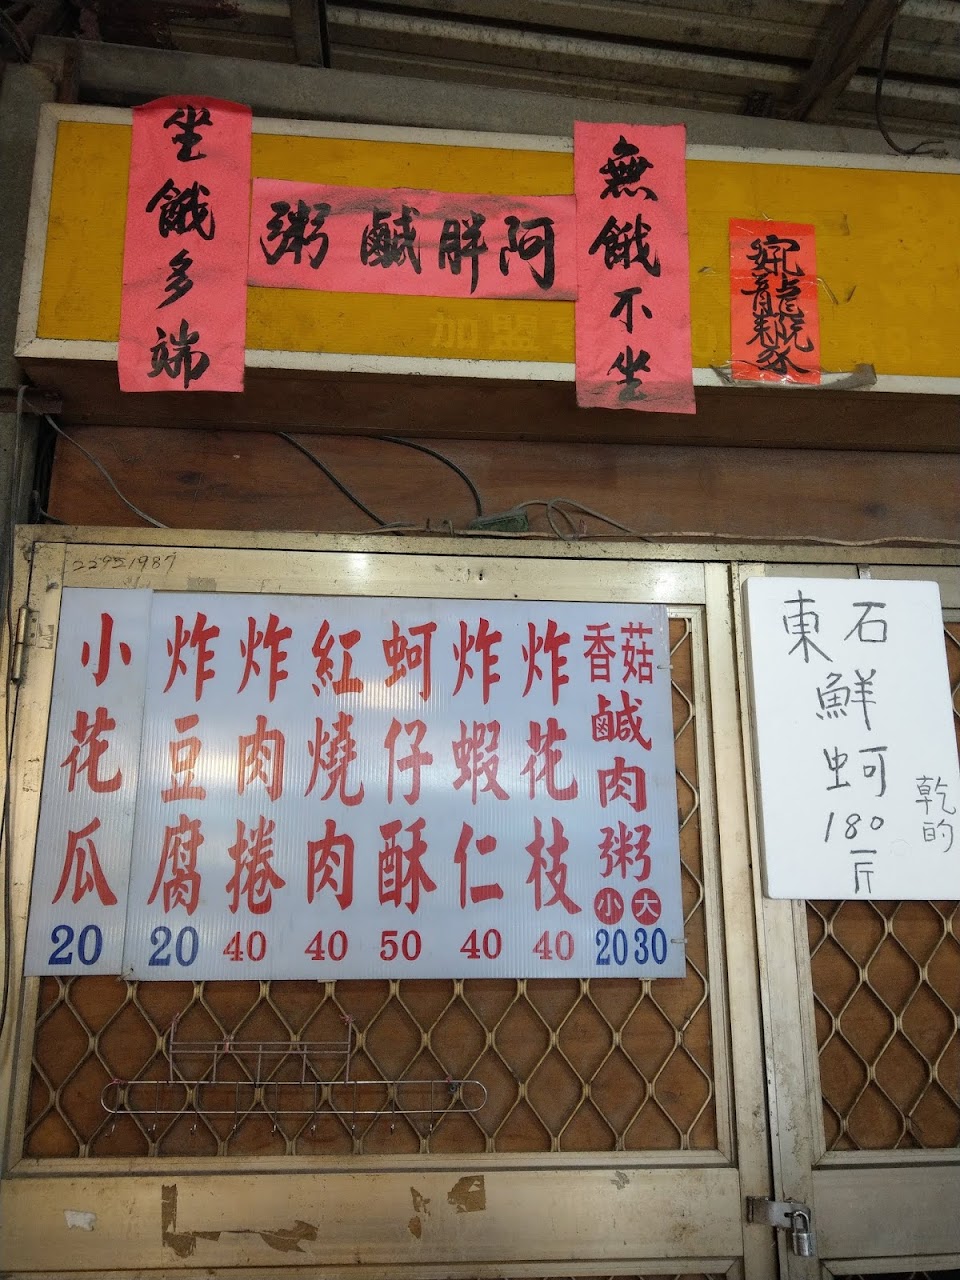 無餓不坐
阿胖鹹粥
坐餓多端
加盟
22951987
香菇鹹肉粥 小 20 大 30
炸花枝 40
炸蝦仁 40
蚵仔酥 50
紅燒肉 40
炸肉捲 40
炸豆腐 20
小花瓜 20
東石
鮮蚵
180
一斤
乾的